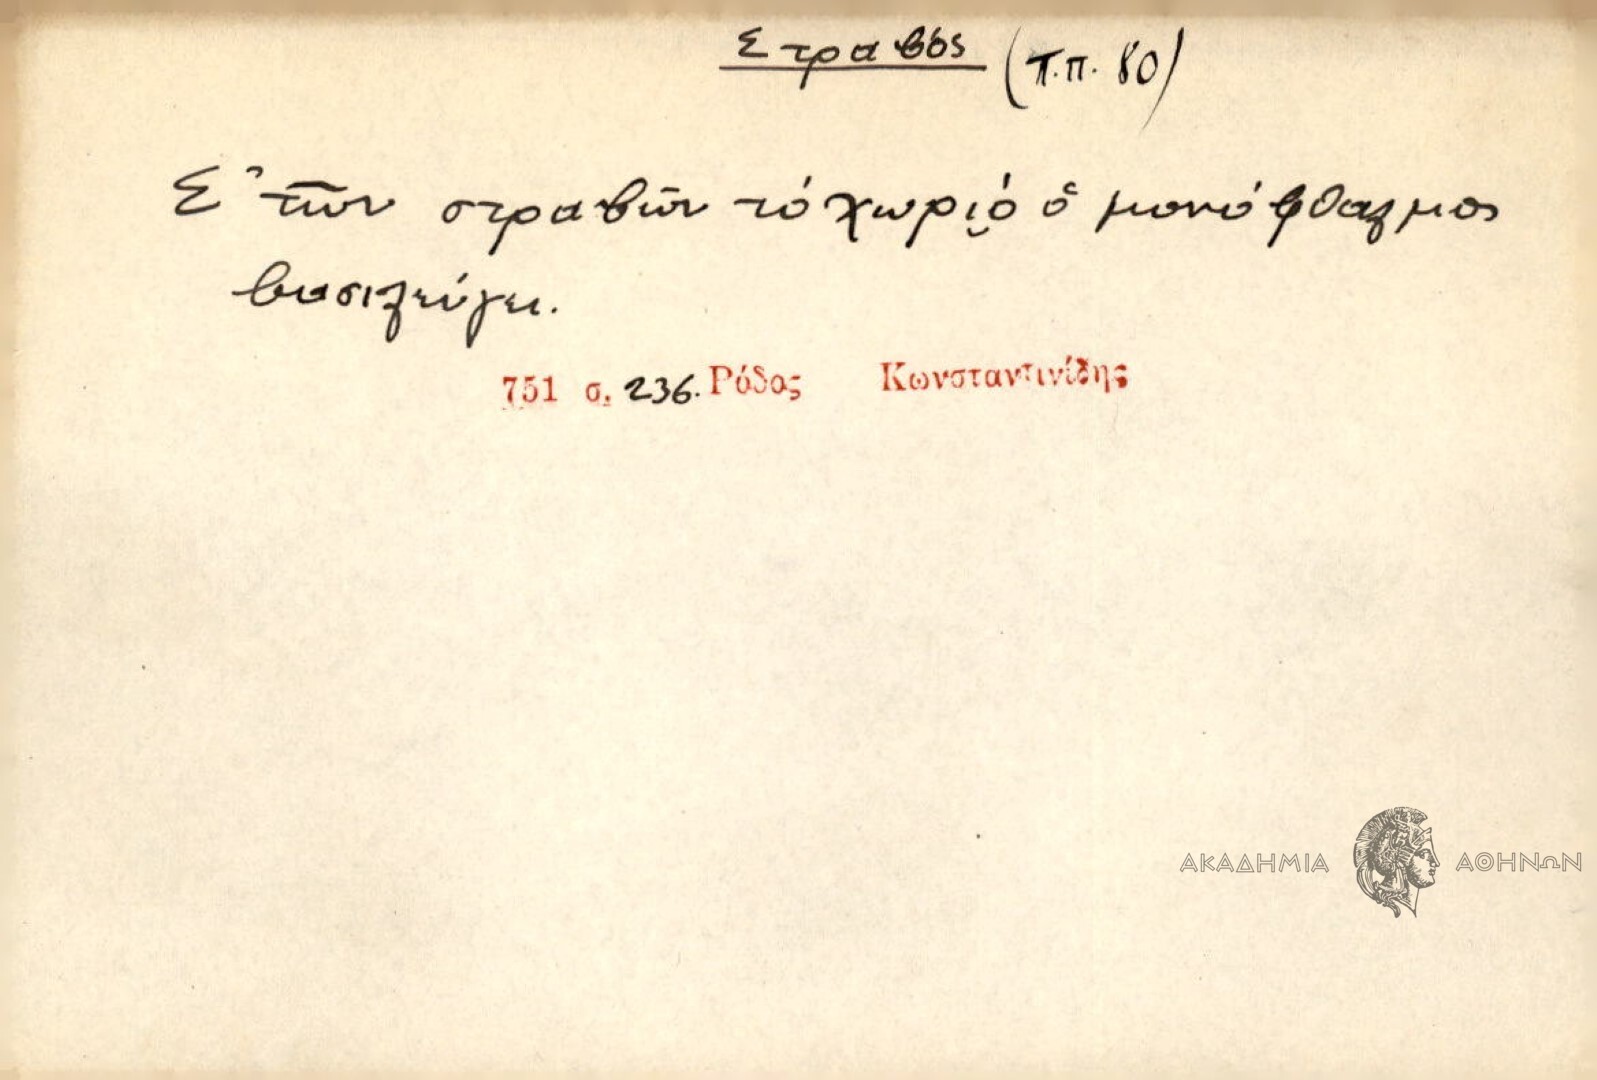 Στραβός (Π.Π. 80)
Σ' τῶν στραβῶν τό χωριό ὁ μονόφθαλμος
βασιλεύγει.
751 σ. 236. Ρόδος Κωνσταντινίδης
ΑΚΑΔΗΜΙΑ ΑΘΗΝΩΝ